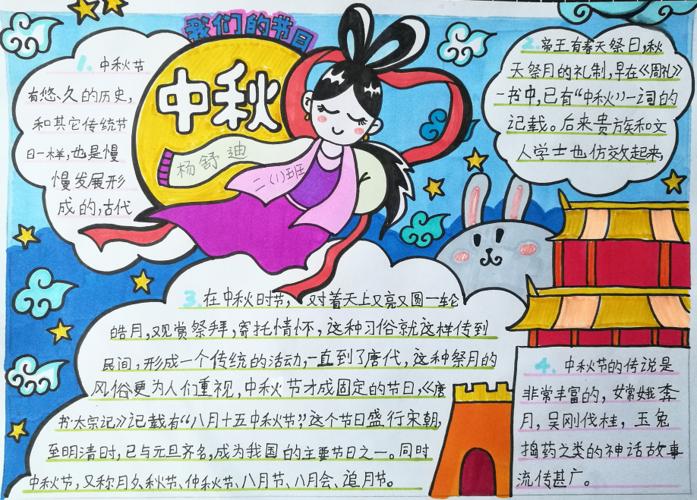 我们的节日
中秋
杨舒迪
二(1)班
1. 中秋节
有悠久的历史,
和其它传统节
日一样,也是慢
慢发展形
成的,古代
2. 帝王有春天祭日,秋
天祭月的礼制,早在《周礼》
一书中,已有“中秋”一词的
记载。后来贵族和文
人学士也仿效起来,
3. 在中秋时节,对着天上又亮又圆一轮
皓月,观赏祭拜,寄托情怀,这种习俗就这样传到
民间,形成一个传统的活动,一直到了唐代,这种祭月的
风俗更为人们重视,中秋节才成固定的节日,《唐
书·太宗记》记载有“八月十五中秋节”,这个节日盛行宋朝,
至明清时,已与元旦齐名,成为我国的主要节日之一。同时
中秋节,又称月夕,秋节、仲秋节、八月节、八月会、追月节。
4. 中秋节的传说是
非常丰富的,嫦娥奔
月,吴刚伐桂,玉兔
捣药之类的神话故事
流传甚广。